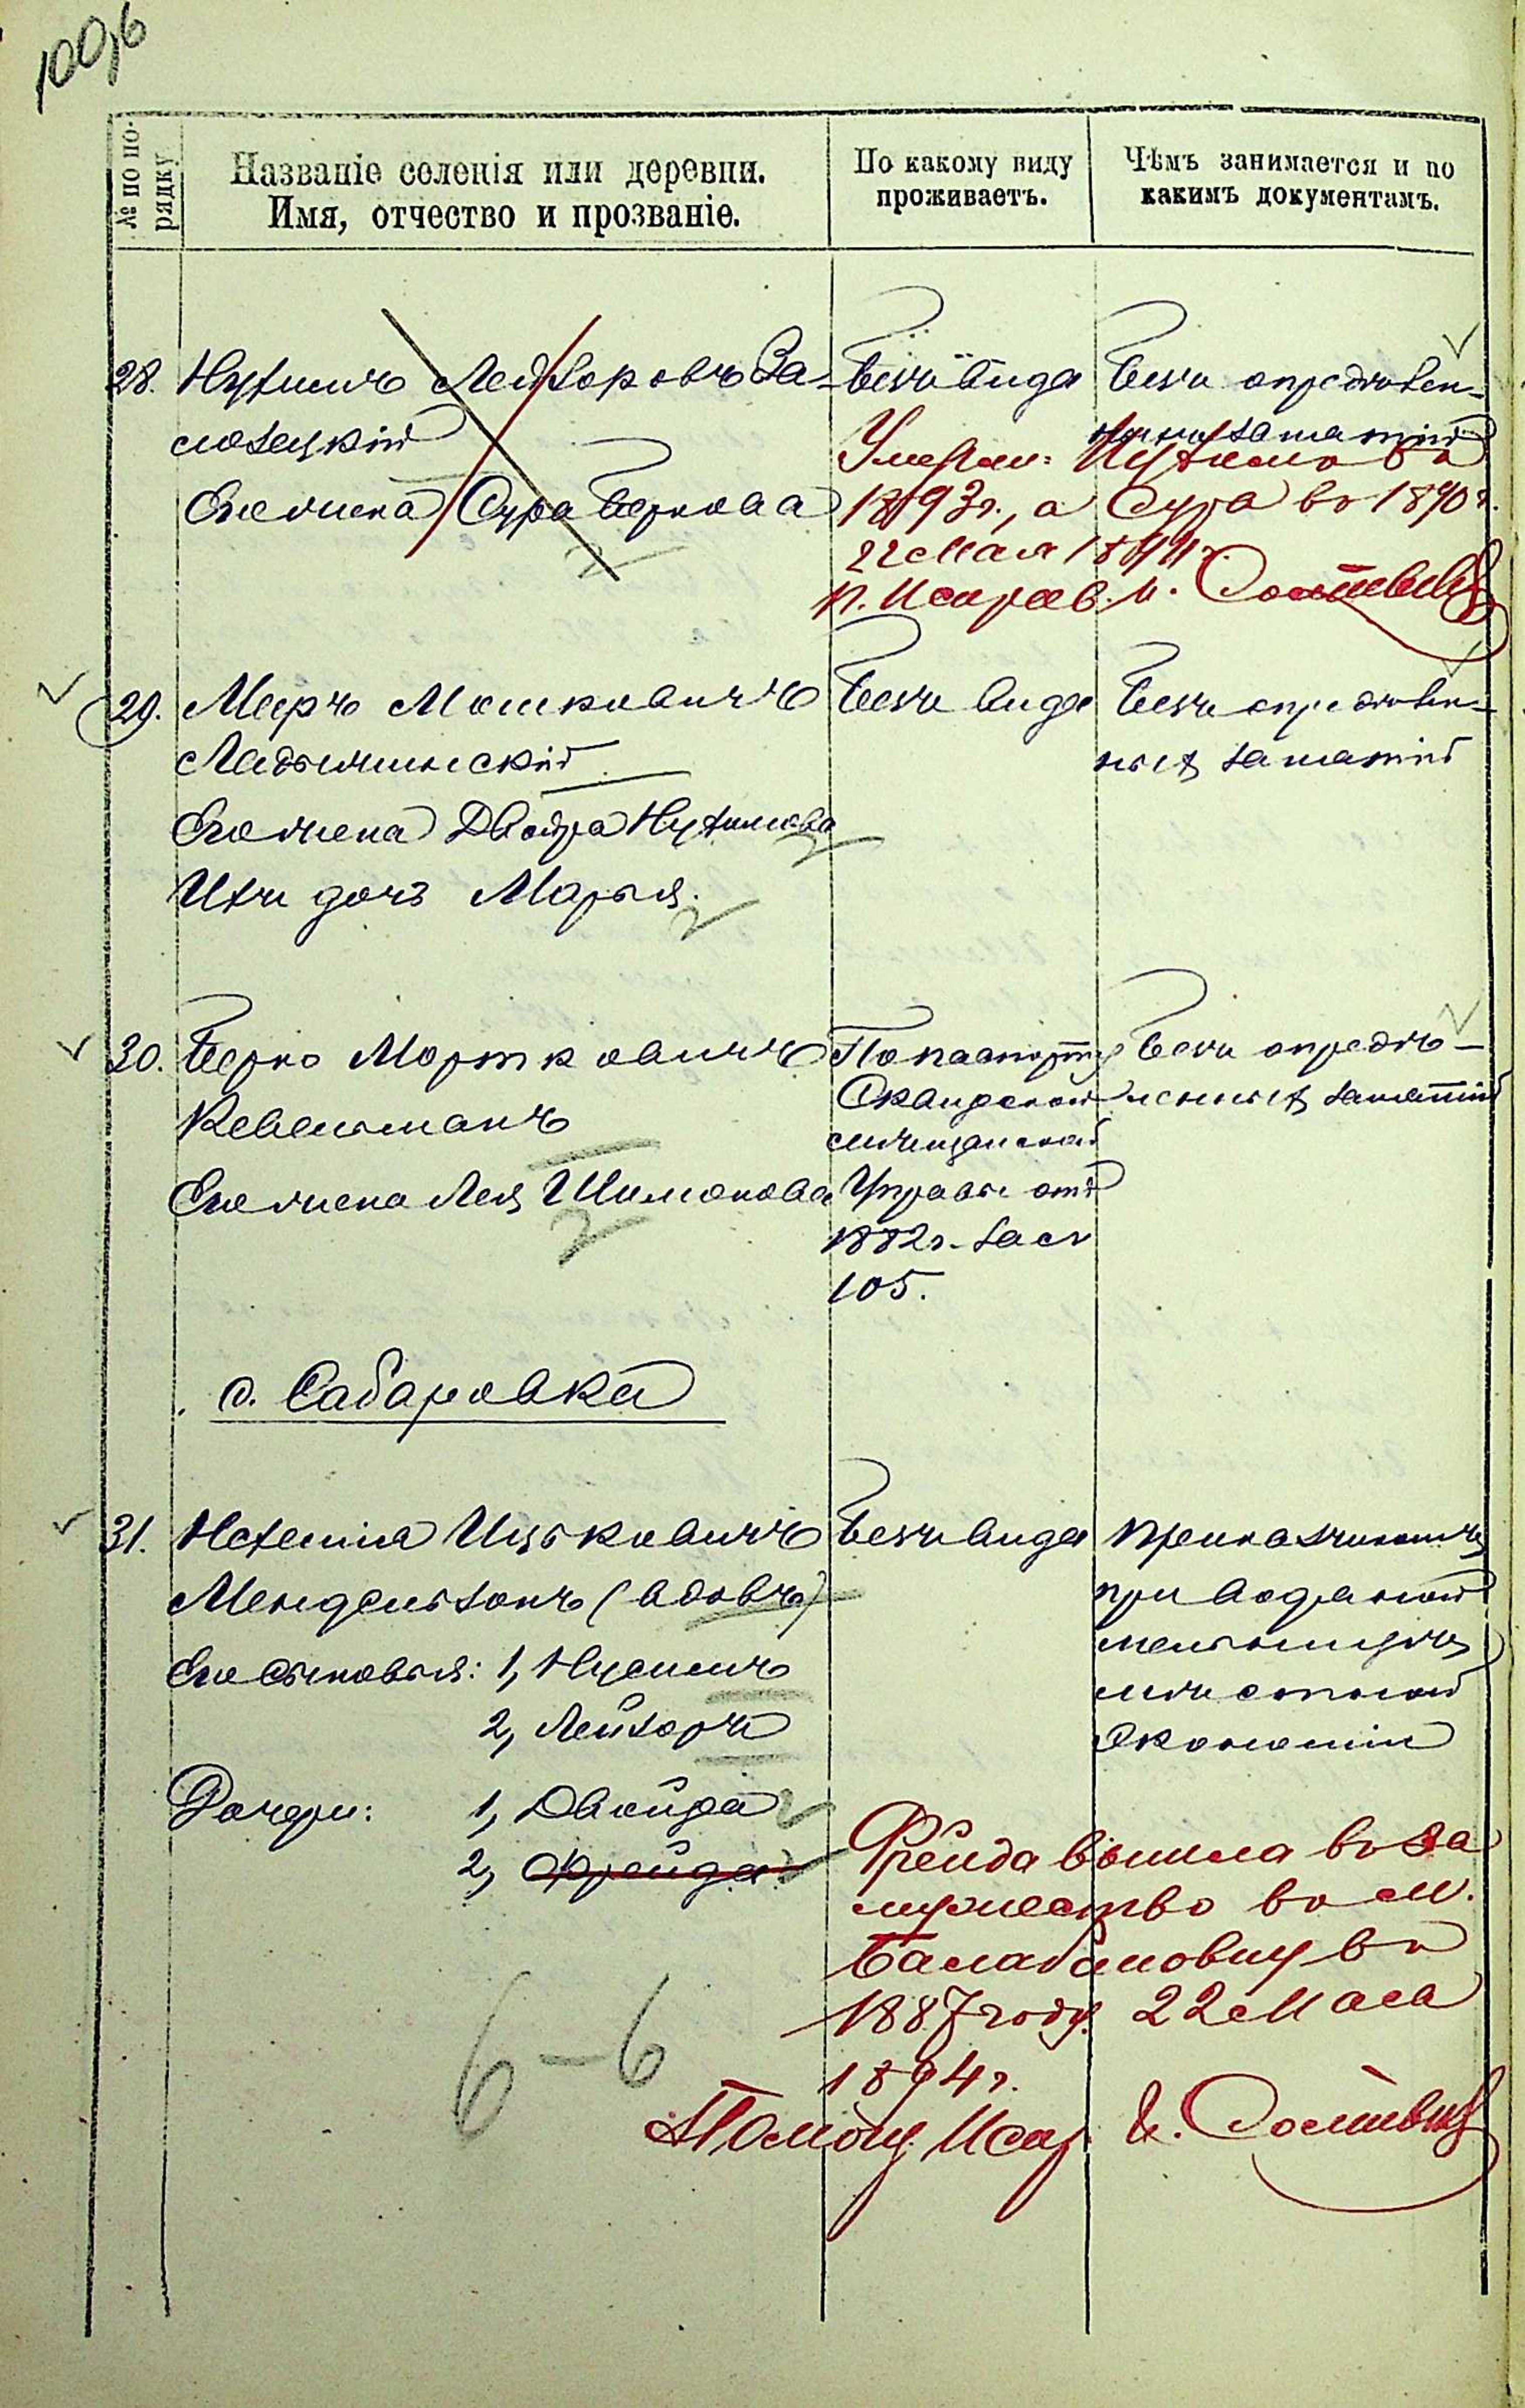 100об
№ по по-
рядку
Названіе селенія или деревни.
Имя, отчество и прозваніе.
По какому виду
проживаетъ.
Чѣмъ занимается и по
какимъ документамъ.
28. Нухимъ Лейзоровъ За-
слозецкій
Его жена Сура Беркова
Безъ вида
Безъ опредѣлен-
ныхъ занятій
Умерли: Нухимъ въ
1893г., а Сура въ 1890г.
22 Мая 1894г.
П. Исправ. И.
29. Мееръ Мошковичъ
Ладыжинскій
Его жена Двойра Нухимова
Ихъ дочь Марья.
Безъ вида
Безъ опредѣлен-
ныхъ занятій
30. Берко Мортковичъ
Кевельманъ
Его жена Лея Шимонова
По паспорту
Сквирской
мѣщанской
Управы отъ
1882г. за №
105.
Безъ опредѣ-
ленныхъ занятій
с. Сабаровка
31. Нехемія Ицьковичъ
Мендельзонъ (вдовъ)
Его сыновья: 1, Нусимъ
2, Лейзоръ
Дочери: 1, Двойра
2, Фрейда
Безъ вида
Прикащикомъ
при водяной
мельницѣ
мѣстной
экономіи
Фрейда вышла въ за
мужество въ м.
Балабановку въ
1887 году. 22 Мая
1894г.
Помощ. Испр. И.
6-6